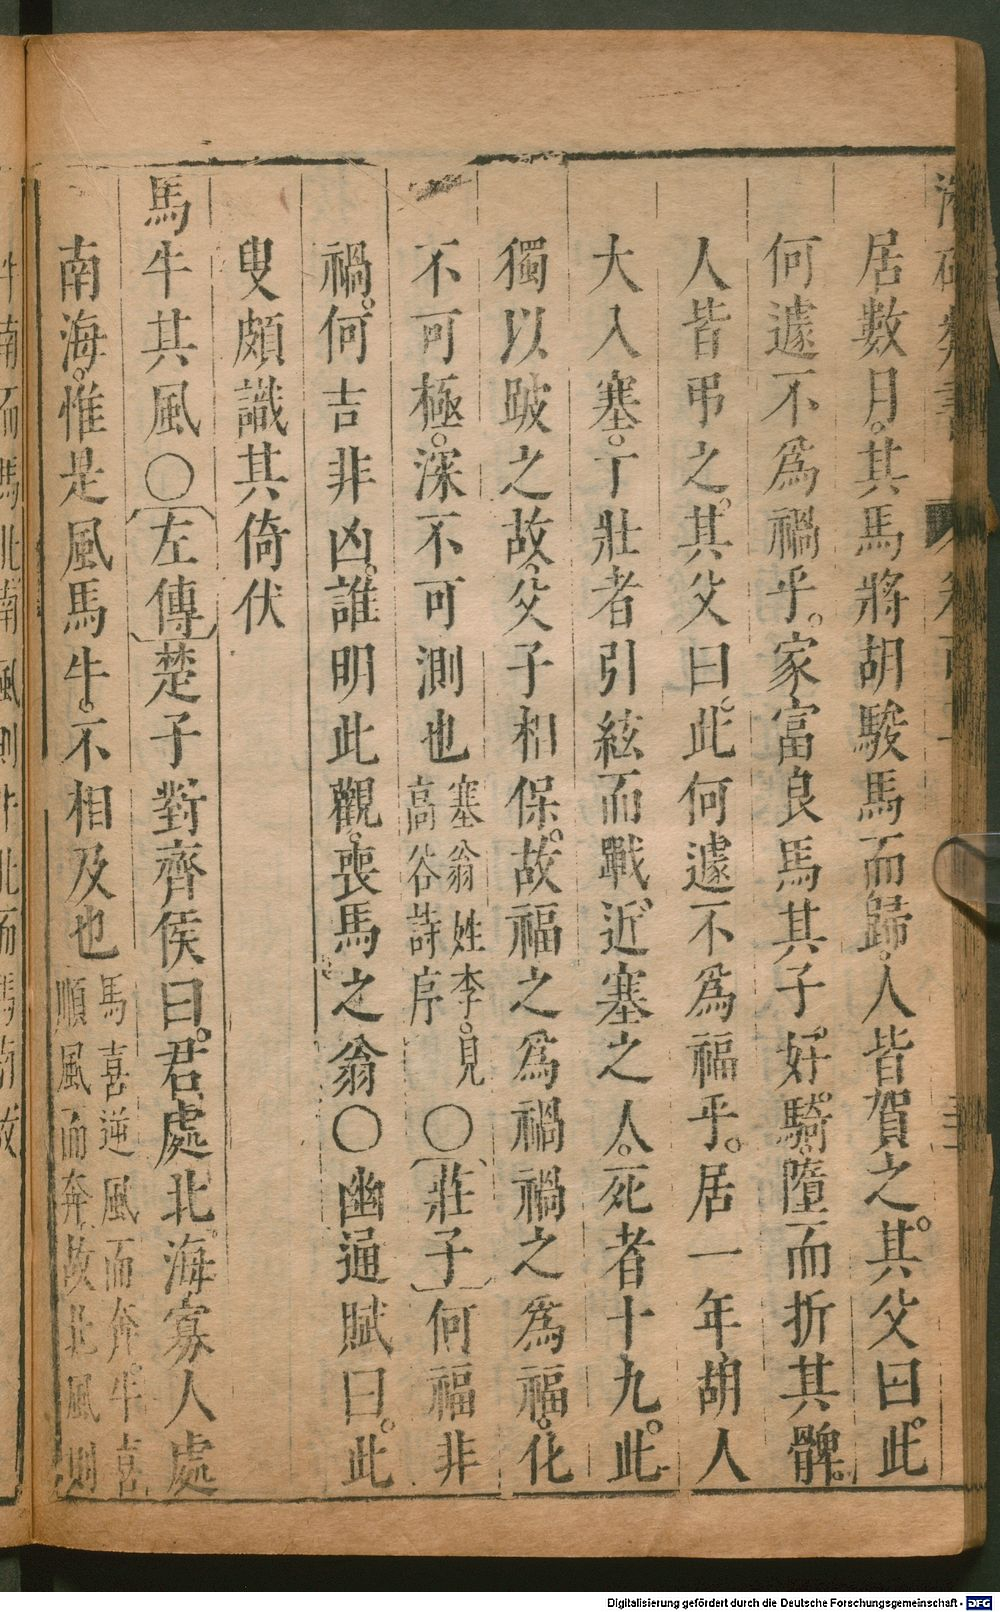 居數月。其馬將胡駿馬而歸。人皆賀之。其父曰。此
何遽不爲禍乎。家富良馬其子好騎。墮而折其髀。
人皆弔之。其父曰。此何遽不爲福乎。居一年胡人
大入塞。丁壯者引絃而戰。近塞之人。死者十九。此
獨以跛之故。父子相保。故福之爲禍禍之爲福。化
不可極。深不可測也
塞翁姓李。見
高谷詩序
○〔莊子〕何福非
禍。何吉非凶。誰明此觀。喪馬之翁○幽通賦曰。此
叟頗識其倚伏
馬牛其風○〔左傳〕楚子對齊侯曰。君處北海寡人處
南海。惟是風馬牛。不相及也
馬喜逆風而奔。牛喜
順風而奔。故北風則
牛南而馬北南風則牛北而馬南故
Digitalisierung gefördert durch die Deutsche Forschungsgemeinschaft - DFG